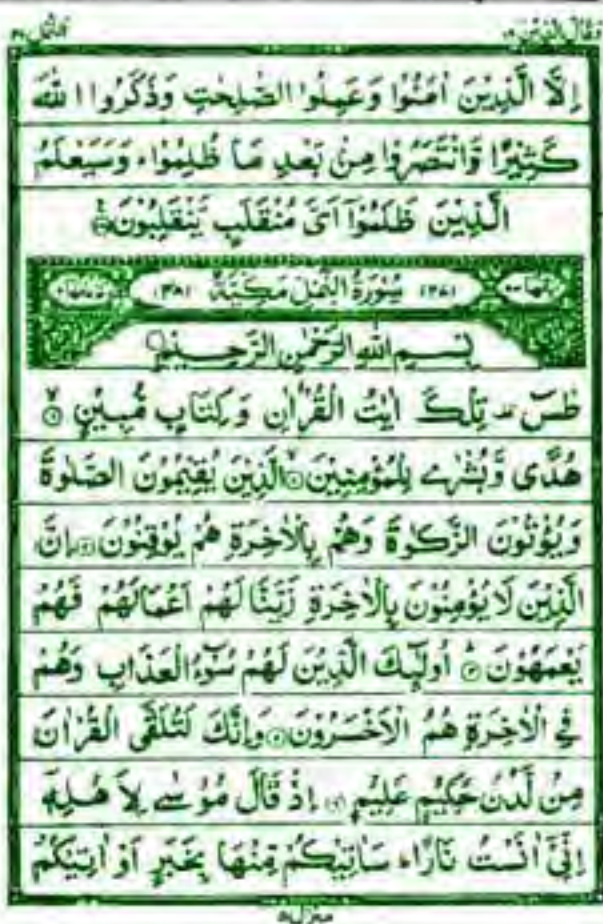 وقال الذین ١٩
النمل ٢٧
اِلَّا الَّذِيْنَ اٰمَنُوْا وَعَمِلُوا الصّٰلِحٰتِ وَذَكَرُوا اللّٰهَ
كَثِيْرًا وَّانْتَصَرُوْا مِنْۢ بَعْدِ مَا ظُلِمُوْاؕ وَسَيَعْلَمُ
الَّذِيْنَ ظَلَمُوْۤا اَىَّ مُنْقَلَبٍ يَّنْقَلِبُوْنَ
(٢٧) سُوْرَةُ النَّمْلِ مَكِّيَّةٌ (٤٨)
بِسْمِ اللّٰهِ الرَّحْمٰنِ الرَّحِيْمِ
طٰسٓ تِلْكَ اٰيٰتُ الْقُرْاٰنِ وَكِتَابٍ مُّبِيْنٍ ۙ ١
هُدًى وَّبُشْرٰے لِلْمُؤْمِنِيْنَ ۙ ٢ الَّذِيْنَ يُقِيْمُوْنَ الصَّلٰوةَ
وَيُؤْتُوْنَ الزَّكٰوةَ وَهُمْ بِالْاٰخِرَةِ هُمْ يُوْقِنُوْنَ ٣ اِنَّ
الَّذِيْنَ لَا يُؤْمِنُوْنَ بِالْاٰخِرَةِ زَيَّنَّا لَهُمْ اَعْمَالَهُمْ فَهُمْ
يَعْمَهُوْنَ ؕ ٤ اُولٰٓئِكَ الَّذِيْنَ لَهُمْ سُوْٓءُ الْعَذَابِ وَهُمْ
فِي الْاٰخِرَةِ هُمُ الْاَخْسَرُوْنَ ٥ وَاِنَّكَ لَتُلَقَّى الْقُرْاٰنَ
مِنْ لَّدُنْ حَكِيْمٍ عَلِيْمٍ ٦ اِذْ قَالَ مُوْسٰے لِاَهْلِهٖۤ
اِنِّيْۤ اٰنَسْتُ نَارًاؕ سَاٰتِيْكُمْ مِّنْهَا بِخَبَرٍ اَوْ اٰتِيْكُمْ
منزل ٥